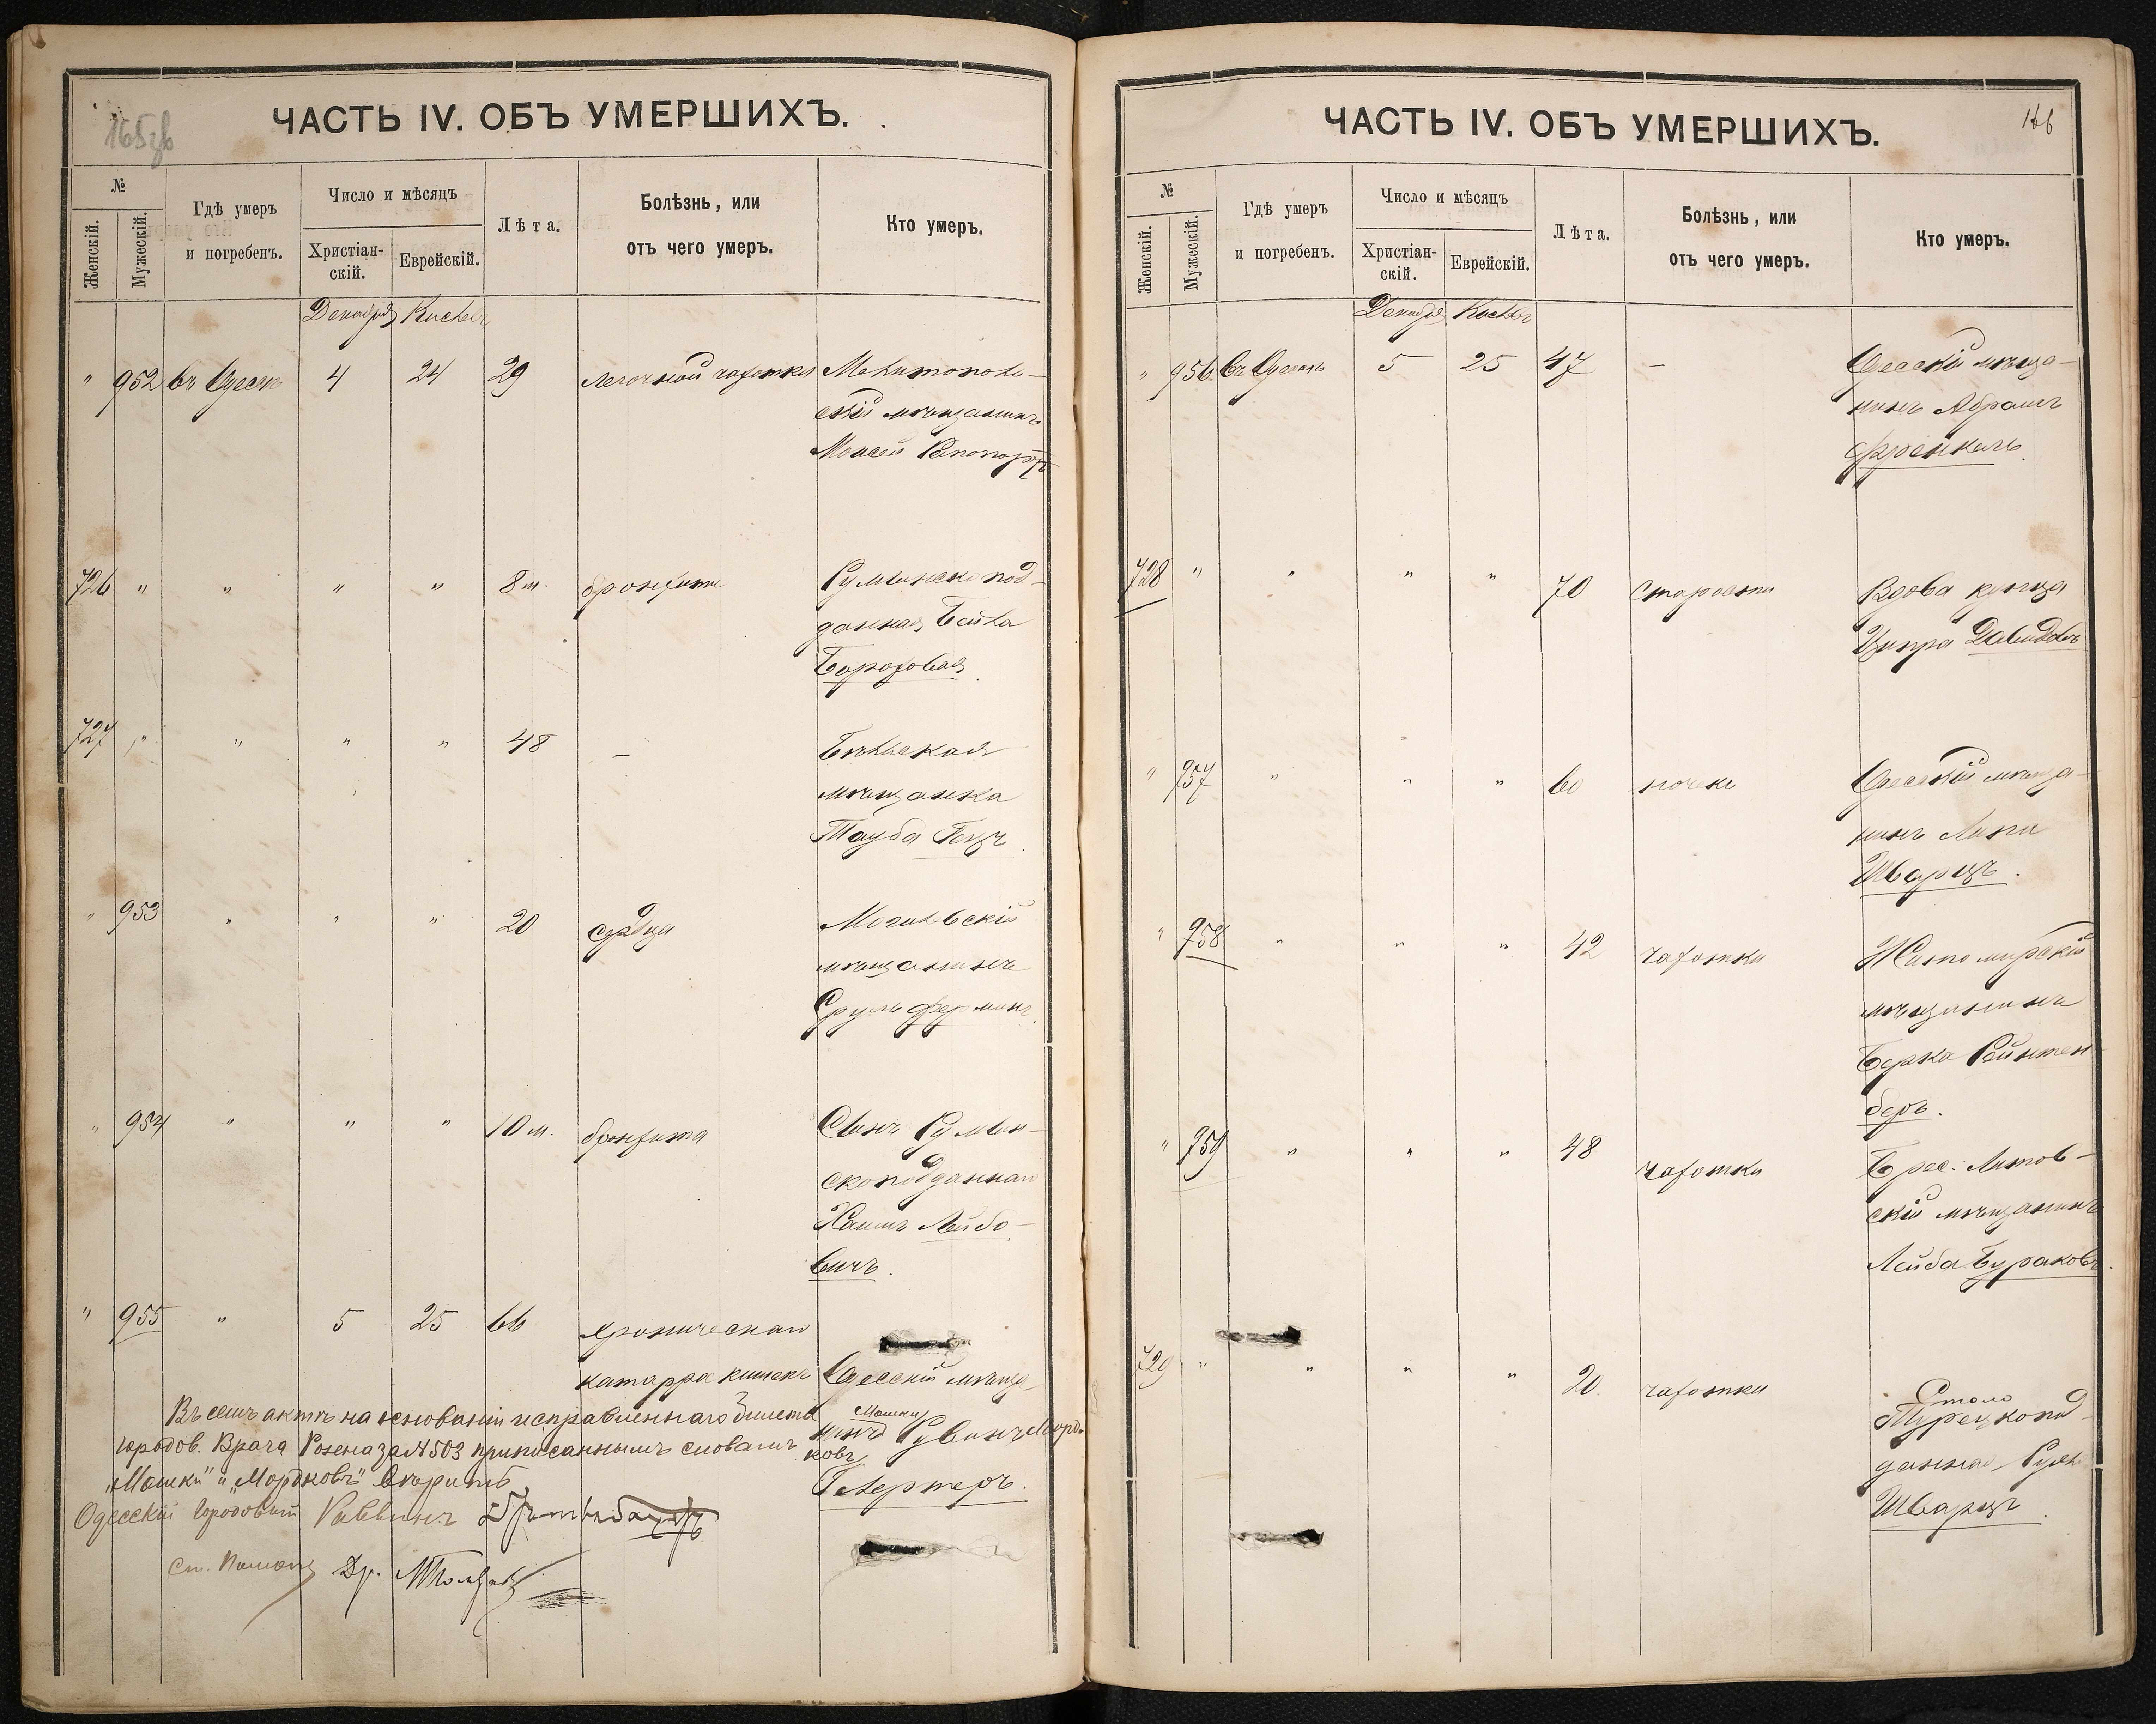 165 об
ЧАСТЬ IV. ОБЪ УМЕРШИХЪ.
№
Женскій.
Мужескій.
Гдѣ умеръ
и погребенъ.
Число и мѣсяцъ
Христіан-
скій.
Еврейскій.
Лѣта.
Болѣзнь, или
отъ чего умеръ.
Кто умеръ.
Декабря Кислевъ
" 952 въ Одессѣ 4 24 29 легочной чахотки Мелитополь-
скій мѣщанинъ
Моисей Рапопортъ
726 " " " " 8 м. бронхита Румынско под-
данная Бейла
Бороховая
727 " " " " 48 – Бѣльская
мѣщанка
Тауба Гецъ.
" 953 " " " 20 сердца Могилевскій
мѣщанинъ
Сруль Ферманъ.
" 954 " " " 10 м. бронхита Сынъ Румын-
скоподданнаго
Хаимъ Лейбо-
вичъ.
" 955 " 5 25 66 хроническаго
катарра кишекъ Одесскій мѣща-
Мошки
нинъ Рувинъ Морд-
ковъ
Гелертеръ.
Въ семъ актѣ на основаніи исправленнаго билета
городов. Врача Розена за № 503 приписаннымъ словамъ
"Мошки" и "Мордковъ" вѣрить
Одесскій Городовой Раввинъ
Ст. Помощ Др.
166
ЧАСТЬ IV. ОБЪ УМЕРШИХЪ.
№
Женскій.
Мужескій.
Гдѣ умеръ
и погребенъ.
Число и мѣсяцъ
Христіан-
скій.
Еврейскій.
Лѣта.
Болѣзнь, или
отъ чего умеръ.
Кто умеръ.
Декабря Кислевъ
" 956 Въ Одессѣ 5 25 47 – Одесскій мѣща-
нинъ Абрамъ
Френкель.
728 " " " " 70 старости Вдова купца
Ципра Давидовъ
" 957 " " " 60 почекъ Одесскій мѣща-
нинъ Липа
Шварцъ.
" 958 " " " 42 чахотки Житомирскій
мѣщанинъ
Берка Ройтен-
беръ.
" 959 " " " 48 чахотки Брес. Литов-
скій мѣщанинъ
Лейба Бураковъ.
729 " " " " 20. чахотки
Турецкопод-
данная
Шварцъ.